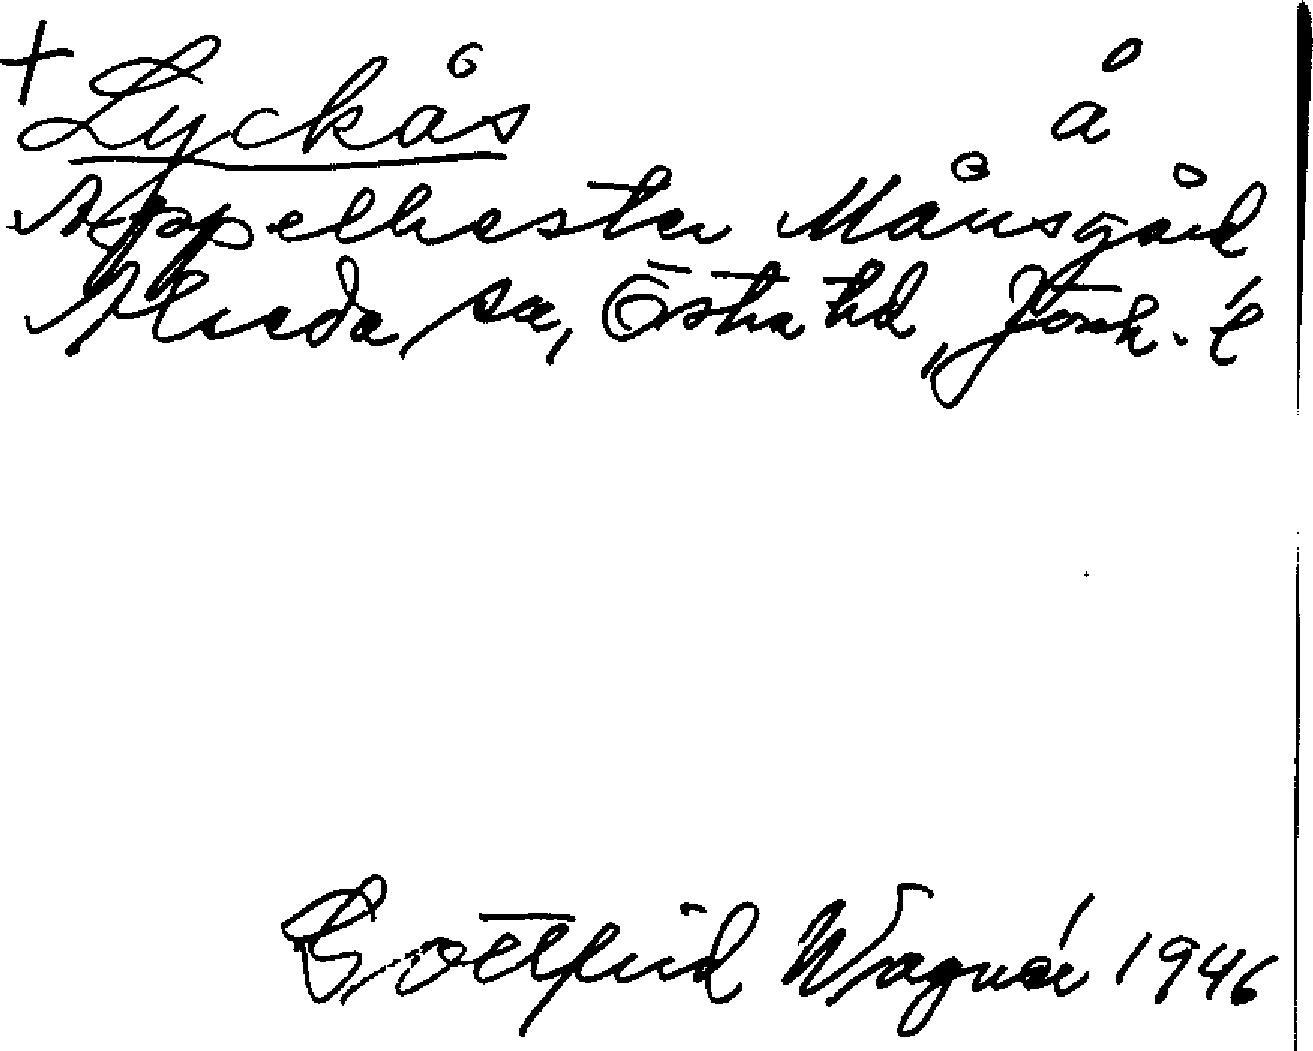 + Lyckås å
Appelhester Månsgård
Almeda sn, Östra hd, Jönk. l
Gottfrid Wagnér 1946